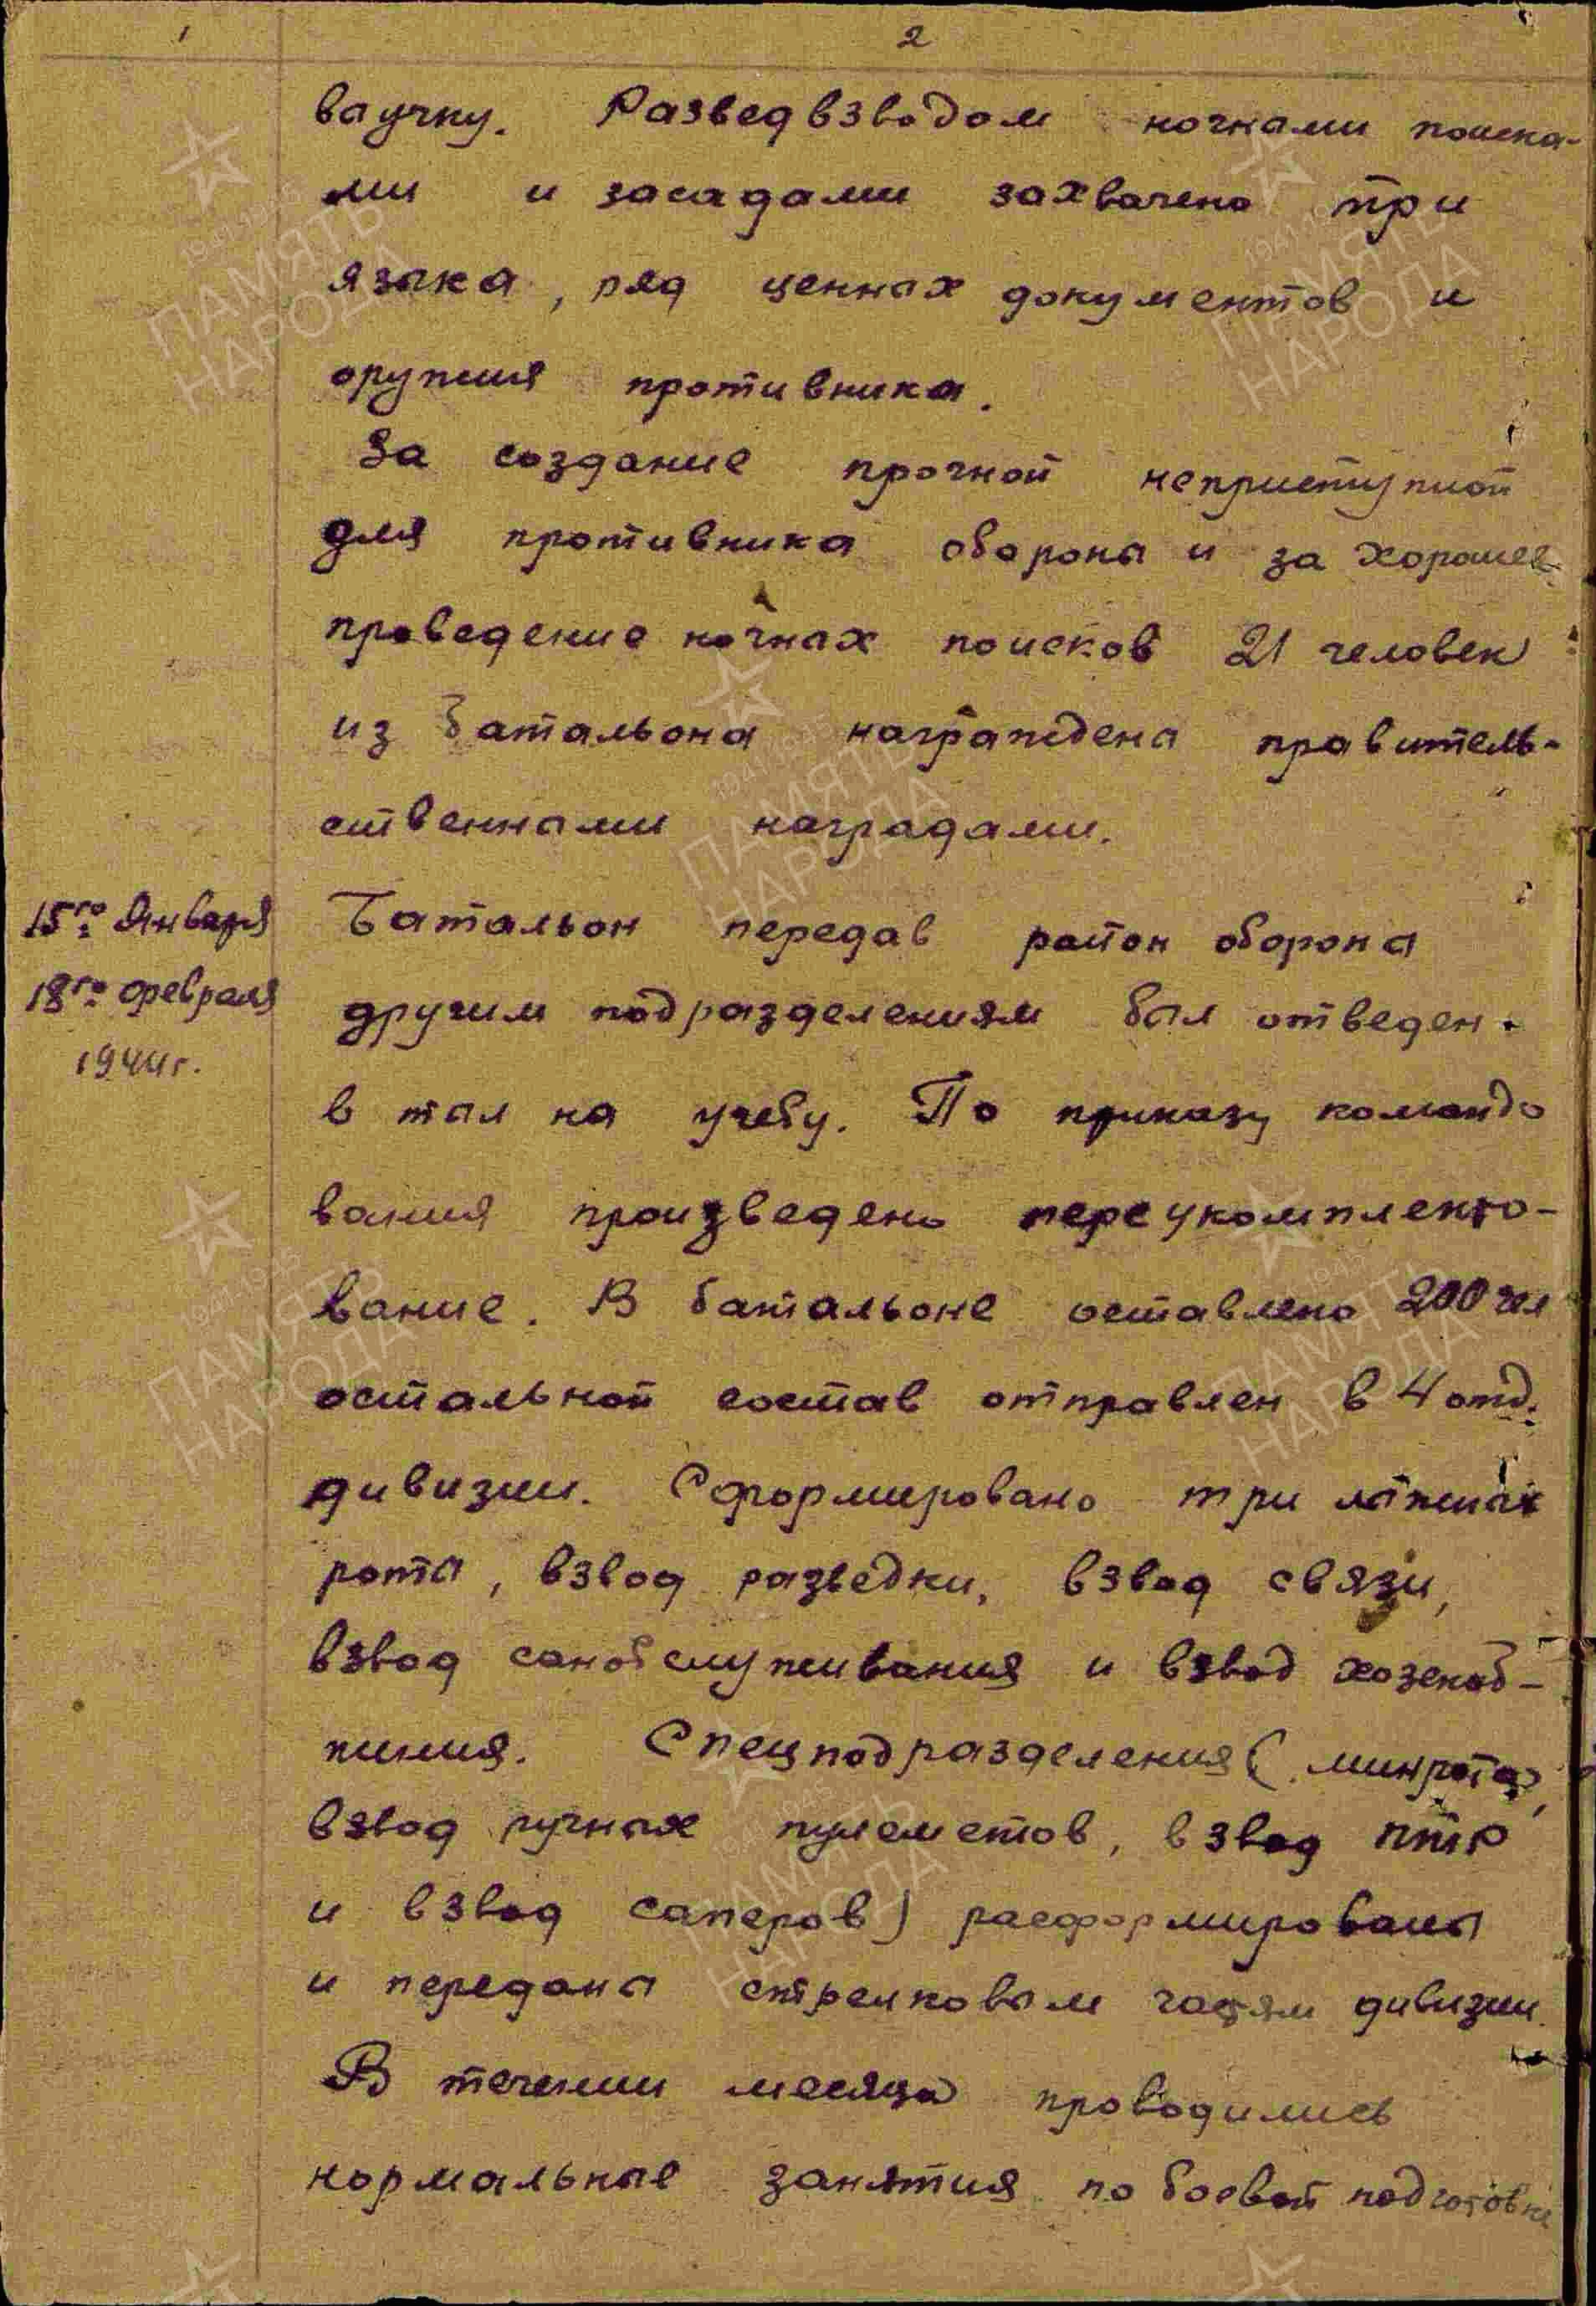 1 2
ваучку. Разведвзводом ночными поиска-
ми и засадами захвачено три
языка, ряд ценных документов и
оружия противника.
За создание прочной неприступной
для противника обороны и за хорошее
проведение ночных поисков 21 человек
из батальона награждены правитель-
ственными наградами.
15го Января Батальон передав район обороны
18го февраля другим подразделениям был отведен
1944г.
в тыл на учебу. По приказу командо
вания произведено переукомплекто-
вание. В батальоне оставлено 200 чел
остальной состав отправлен в 4 отд.
дивизии. Сформировано три лыжных
роты, взвод разведки, взвод связи,
взвод санобслуживания и взвод хозснаб-
жения. Спецподразделения (минрота,
взвод ручных пулеметов, взвод ПТР
и взвод саперов) расформированы
и переданы стрелковым частям дивизии.
В течении месяца проводились
нормальные занятия по боевой подготовке
ПАМЯТЬ НАРОДА
1941-1945